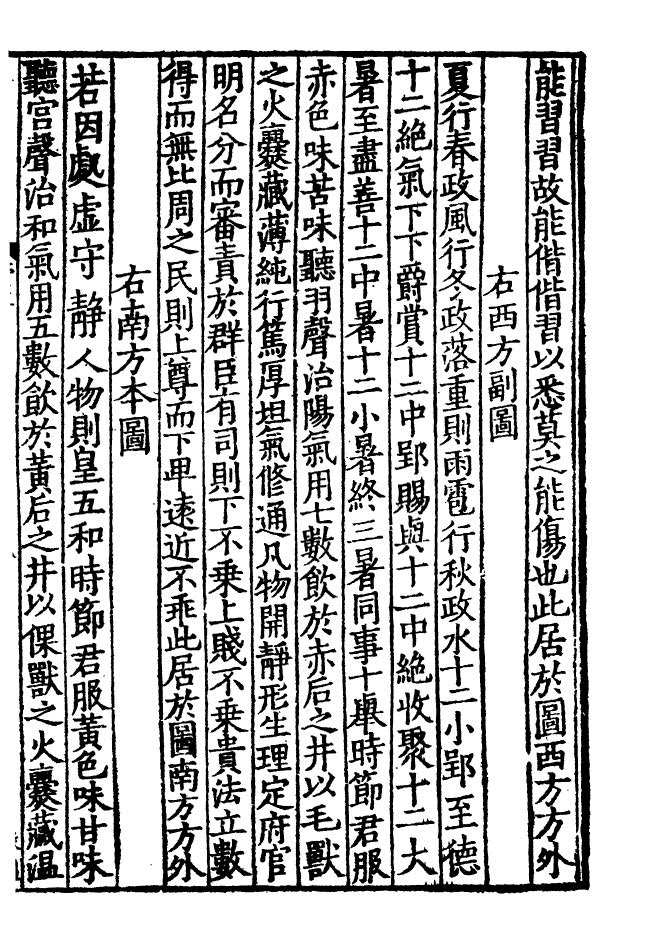 能習習故能偕偕習以悉莫之能傷也此居於圖西方方外
右西方副圖
夏行春政風行冬政落重則雨雹行秋政水十二小郢至德
十二絕氣下下爵賞十二中郢賜與十二中絕收聚十二大
暑至盡善十二中暑十二小暑終三暑同事十舉時節君服
赤色味苦味聽羽聲治陽氣用七數飲於赤后之井以毛獸
之火爨藏薄純行篤厚坦氣修通凡物開靜形生理定府官
明名分而審責於群臣有司則下不乘上賤不乘貴法立數
得而無比周之民則上尊而下卑遠近不乖此居於圖南方方外
右南方本圖
若因處虛守靜人物則皇五和時節君服黃色味甘味
聽宮聲治和氣用五數飲於黃后之井以倮獸之火爨藏溫